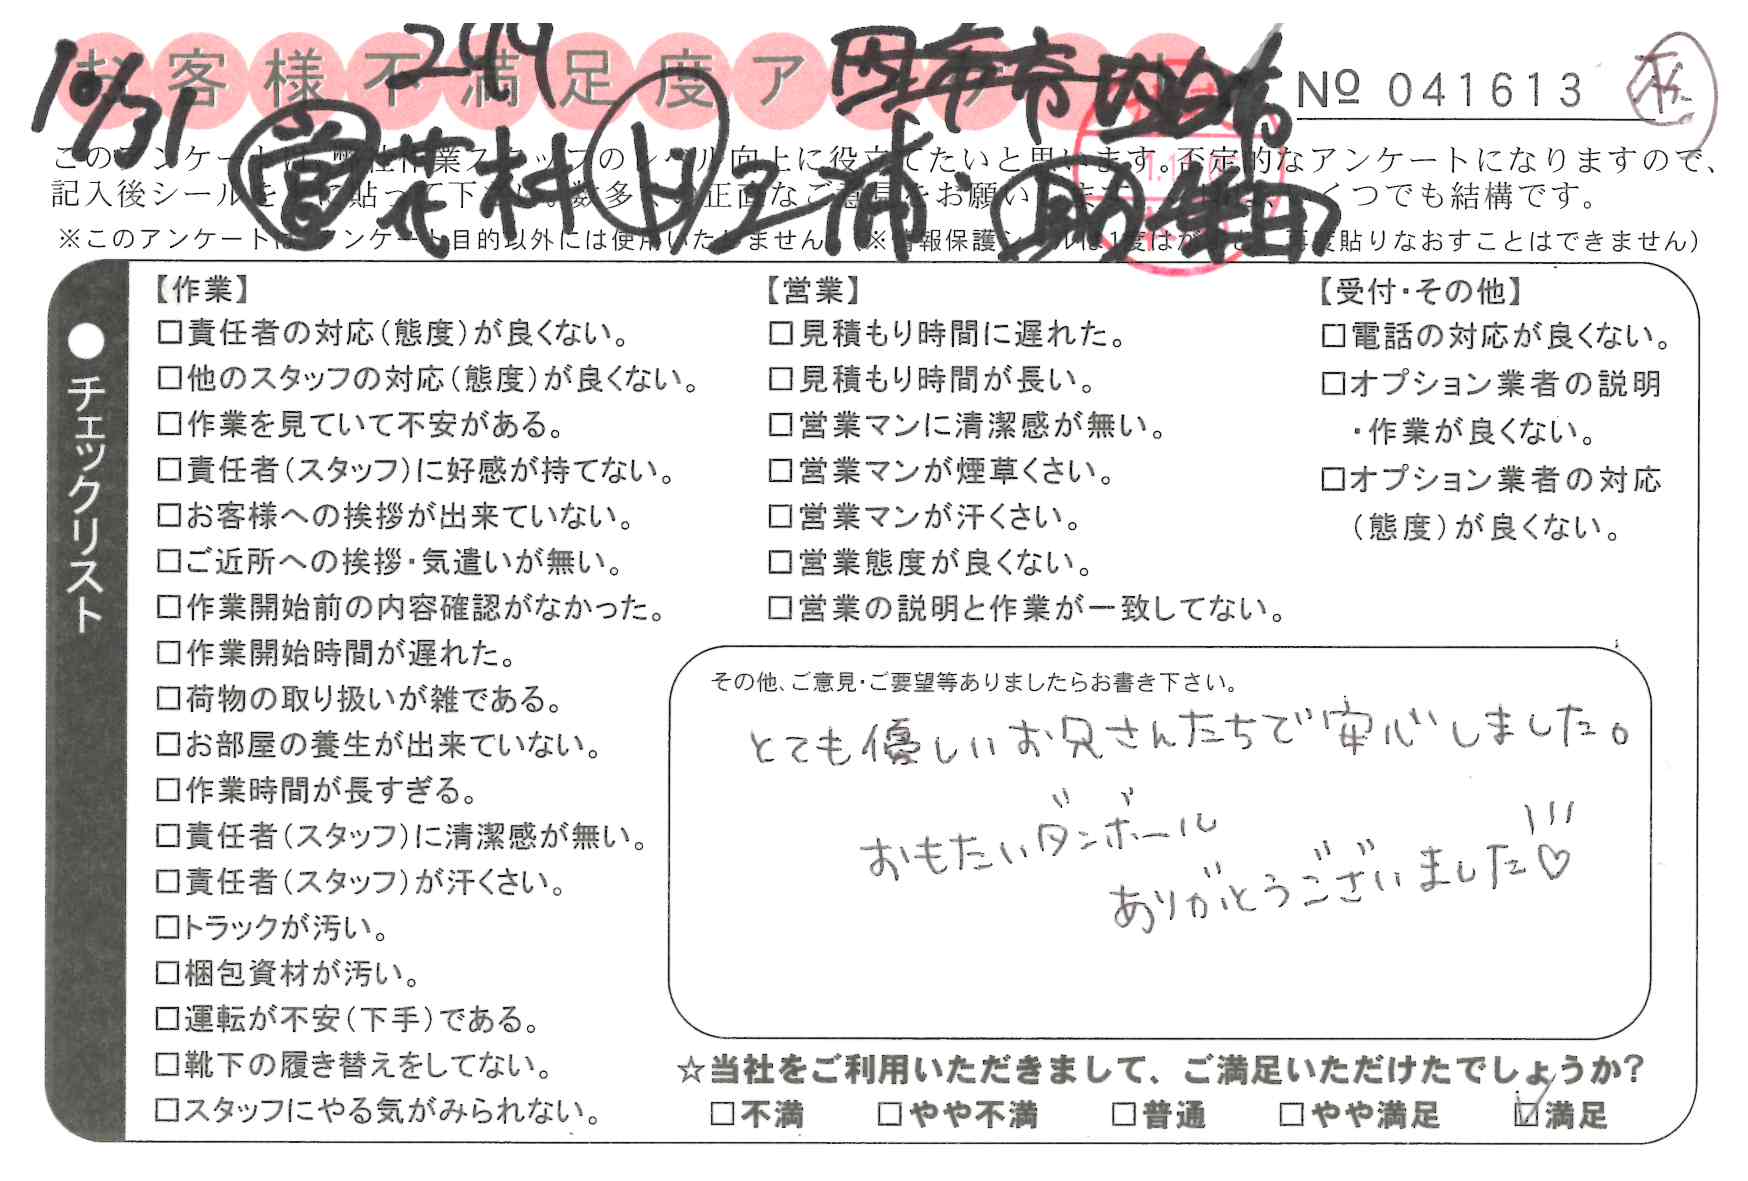 お客様不満足度ア
No 041613
10/31
244
営 花村 ト 三浦・助 津田
このアンケートは、弊社作業スタッフのレベル向上に役立てたいと思います。否定的なアンケートになりますので、
記入後シールを 貼って下さい。数多くの正直なご意見をお願いします くつでも結構です。
※このアンケートは、アンケート目的以外には使用いたしません。(※情報保護シールは1度はがすと、再度貼りなおすことはできません)
●チェックリスト
【作業】
□責任者の対応(態度)が良くない。
□他のスタッフの対応(態度)が良くない。
□作業を見ていて不安がある。
□責任者(スタッフ)に好感が持てない。
□お客様への挨拶が出来ていない。
□ご近所への挨拶・気遣いが無い。
□作業開始前の内容確認がなかった。
□作業開始時間が遅れた。
□荷物の取り扱いが雑である。
□お部屋の養生が出来ていない。
□作業時間が長すぎる。
□責任者(スタッフ)に清潔感が無い。
□責任者(スタッフ)が汗くさい。
□トラックが汚い。
□梱包資材が汚い。
□運転が不安(下手)である。
□靴下の履き替えをしてない。
□スタッフにやる気がみられない。
【営業】
□見積もり時間に遅れた。
□見積もり時間が長い。
□営業マンに清潔感が無い。
□営業マンが煙草くさい。
□営業マンが汗くさい。
□営業態度が良くない。
□営業の説明と作業が一致してない。
【受付・その他】
□電話の対応が良くない。
□オプション業者の説明
・作業が良くない。
□オプション業者の対応
(態度)が良くない。
その他、ご意見・ご要望等ありましたらお書き下さい。
とても優しいお兄さんたちで安心しました。
おもたいダンボール
ありがとうございました♡!!!
☆当社をご利用いただきまして、ご満足いただけたでしょうか?
□不満 □やや不満 □普通 □やや満足 ☑満足